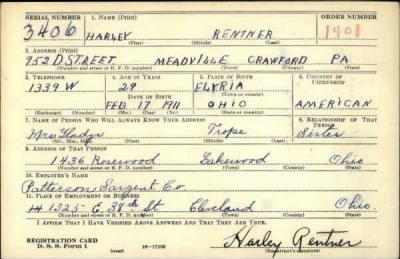 SERIAL NUMBER 1. NAME (Print) ORDER NUMBER
3406 HARLEY RENTNER 1901
(First) (Middle) (Last)
2. ADDRESS (Print)
952 D STREET. MEADVILLE CRAWFORD PA
(Number and street or R. F. D. number) (Town) (County) (State)
3. TELEPHONE 4. AGE IN YEARS 5. PLACE OF BIRTH 6. COUNTRY OF CITIZENSHIP
1339 W 29 ELYRIA
DATE OF BIRTH (Town or county)
FEB 17 1911 OHIO AMERICAN
(Exchange) (Number) (Mo.) (Day) (Yr.) (State or country)
7. NAME OF PERSON WHO WILL ALWAYS KNOW YOUR ADDRESS 8. RELATIONSHIP OF THAT PERSON
Mrs Gladys Sister
(Mr., Mrs., Miss) (First) (Middle) (Last)
9. ADDRESS OF THAT PERSON
1436 Rosewood Lakewood Ohio
(Number and street or R. F. D. number) (Town) (County) (State)
10. EMPLOYER'S NAME
Patterson Sargent Co.
11. PLACE OF EMPLOYMENT OR BUSINESS
1325 E. 38th St Cleveland Ohio
(Number and street or R. F. D. number) (Town) (County) (State)
I AFFIRM THAT I HAVE VERIFIED ABOVE ANSWERS AND THAT THEY ARE TRUE.
REGISTRATION CARD
D. S. S. Form 1 (over) Harley Rentner
(Registrant's signature)